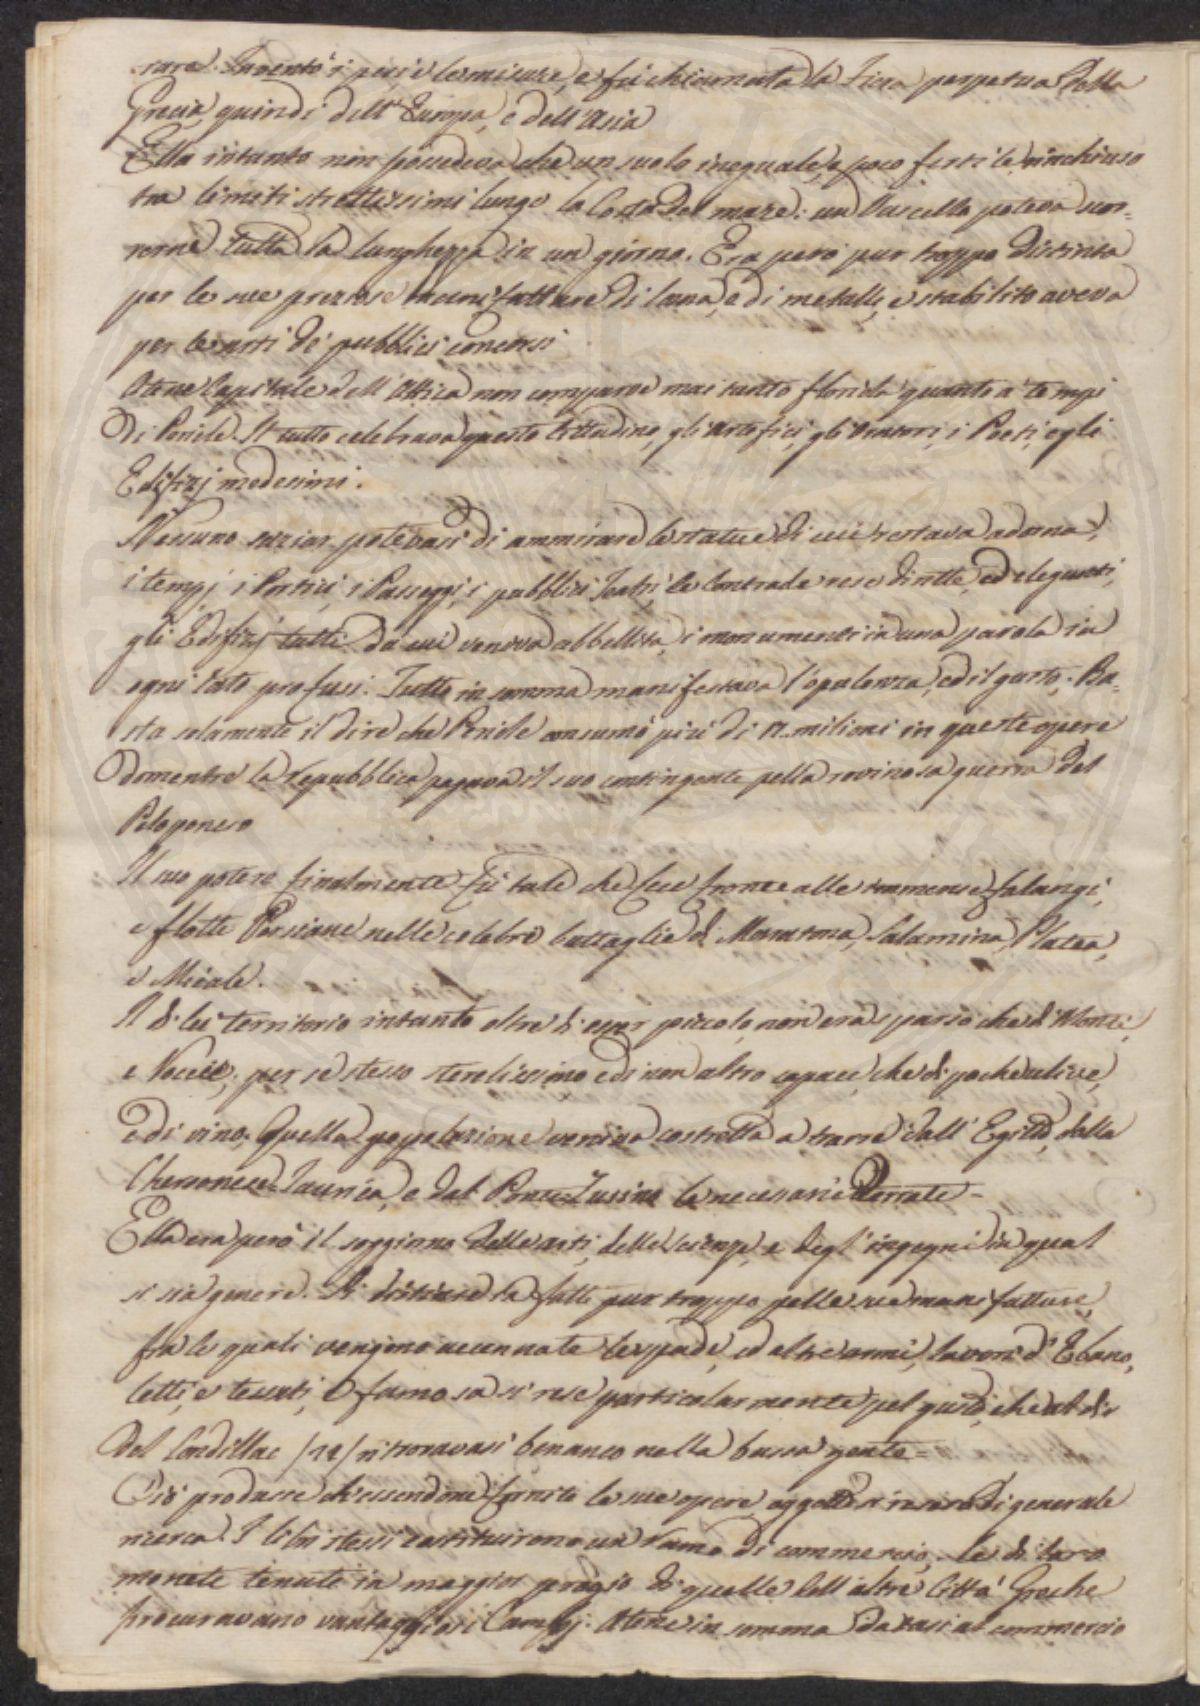 rare. Inventò i pesi e le misure, e fu chiamata la Fiera perpetua della
Grecia, quindi dell'Europa, e dell'Asia
Ella intanto non possedeva che un suolo ineguale, e poco fertile, rinchiuso
tra limiti strettissimi lungo la Costa del mare: un Vascello poteva scor-
rerne tutta la lunghezza in un giorno. Era però pur troppo distinta
per le sue preziose manifatture di lana, e di metalli, e stabilito aveva
per le arti de' pubblici concorsi
Atene Capitale dell'Attica non comparve mai tanto florida quanto a' tempi
di Pericle. Il tutto celebrava questa Cittadina, gli Artefici, gli Oratori, i Poeti, e gli
Edifizj medesimi.
Nessuno saziar potevasi di ammirare le statue di cui restava adorna,
i tempj, i Portici, i Passeggi, i pubblici Teatri, le Contrade rese dirette, ed eleganti,
gli Edifizj tutti da cui veniva abbellita, i monumenti in una parola in
ogni lato profusi. Tutto in somma manifestava l'opulenza, ed il gusto. Ba-
sta solamente il dire che Pericle consumò più di 17. milioni in queste opere
domentre la Repubblica pagava il suo contingente pella rovinosa guerra del
Peloponeso
Il suo potere finalmente fù tale che fece fronte alle immense falangi,
e flotte Persiane nelle celebri battaglie di Maratona, Salamina, Platea,
e Micale.
Il di lei territorio intanto oltre di esser piccolo, non era sparso che di Monti,
e Roccie, per se stesso sterelissimo e di non altro capace, che di poche ulive,
e di vino. Quella popolazione veniva costretta a trarre dall'Egitto, dalla
Chersoneso Taurica, e dal Ponto Eussino le necessarie Derrate -
Ella era però il soggiorno delle arti, delle scienze, e degl'ingegni in qual
si sia genere. Si distinse la fatti pur troppo pelle sue manifatture,
fra le quali vengono accennate le spade, ed altre armi, lavori d'Ebano,
letti, e tessuti, e famosa si rese particolarmente pel gusto, che al dir
del Condillac /12/ ritrovavasi benanco nella bassa gente -
Ciò produsse ch'essendone fornite le sue opere oggetto si resero di generale
ricerca. I libri stessi costituirono un Ramo di commercio. Le di loro
monete tenute in maggior pregio di quelle dell'altre Città Greche
procuravano vantaggiosi Cambj. Atene in somma davasi al commercio